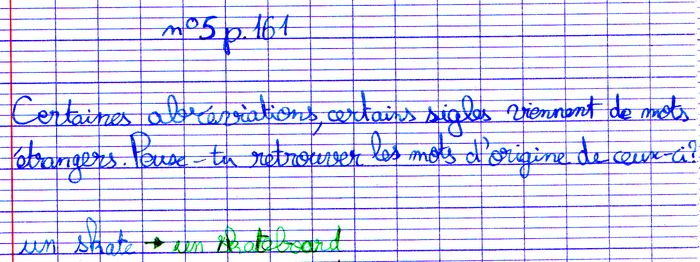 n°5 p.161
Certaines abréviations, certains sigles viennent de mots
étrangers. Peux-tu retrouver les mots d'origine de ceux-ci?
un skate → un skateboard